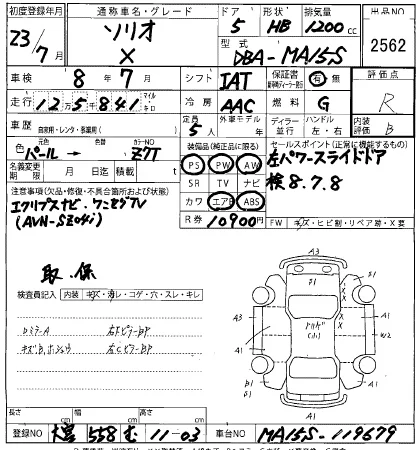 初度登録年月 通称車名・グレード ドア 形状 排気量 出品NO
23/7月 ソリオ X 5 HB 1200cc 2562
型式 DBA-MA15S
車検 8年7月 シフト IAT 保証書 有 無 燃料 G 評価点 R
走行 125841 マイル キロ 冷房 AAC
車歴 自家用・レンタ・事業用( ) 定員 5人 外車モデル 年 ディーラー 並行 ハンドル 左・右 内装評価 B
色 元色 パール→ 色替 カラーNO Z7T 装備品(純正品に限る) セールスポイント(正常に機能するもの)
名義変更期限 月 日迄 積載 t PS PW AW 左パワースライドドア
SR TV ナビ 検8.7.8
注意事項(欠品・修復・不具合箇所および状態) カワ エアB ABS
エクリプスナビ、ワンセグTV R券 10900円 FW キズ・ヒビ割・リペア跡・X要
(AVN-SZ04i)
取.保
検査員記入 内装 キズ・汚レ・コゲ・穴・スレ・キレ
A3
S1
B1
X
X
A3
A1
A1
W2
A1
B1
S1
A1
A3
長さ cm 幅 cm 高さ cm
登録NO 558 む 11-03 車台NO MA15S-119679